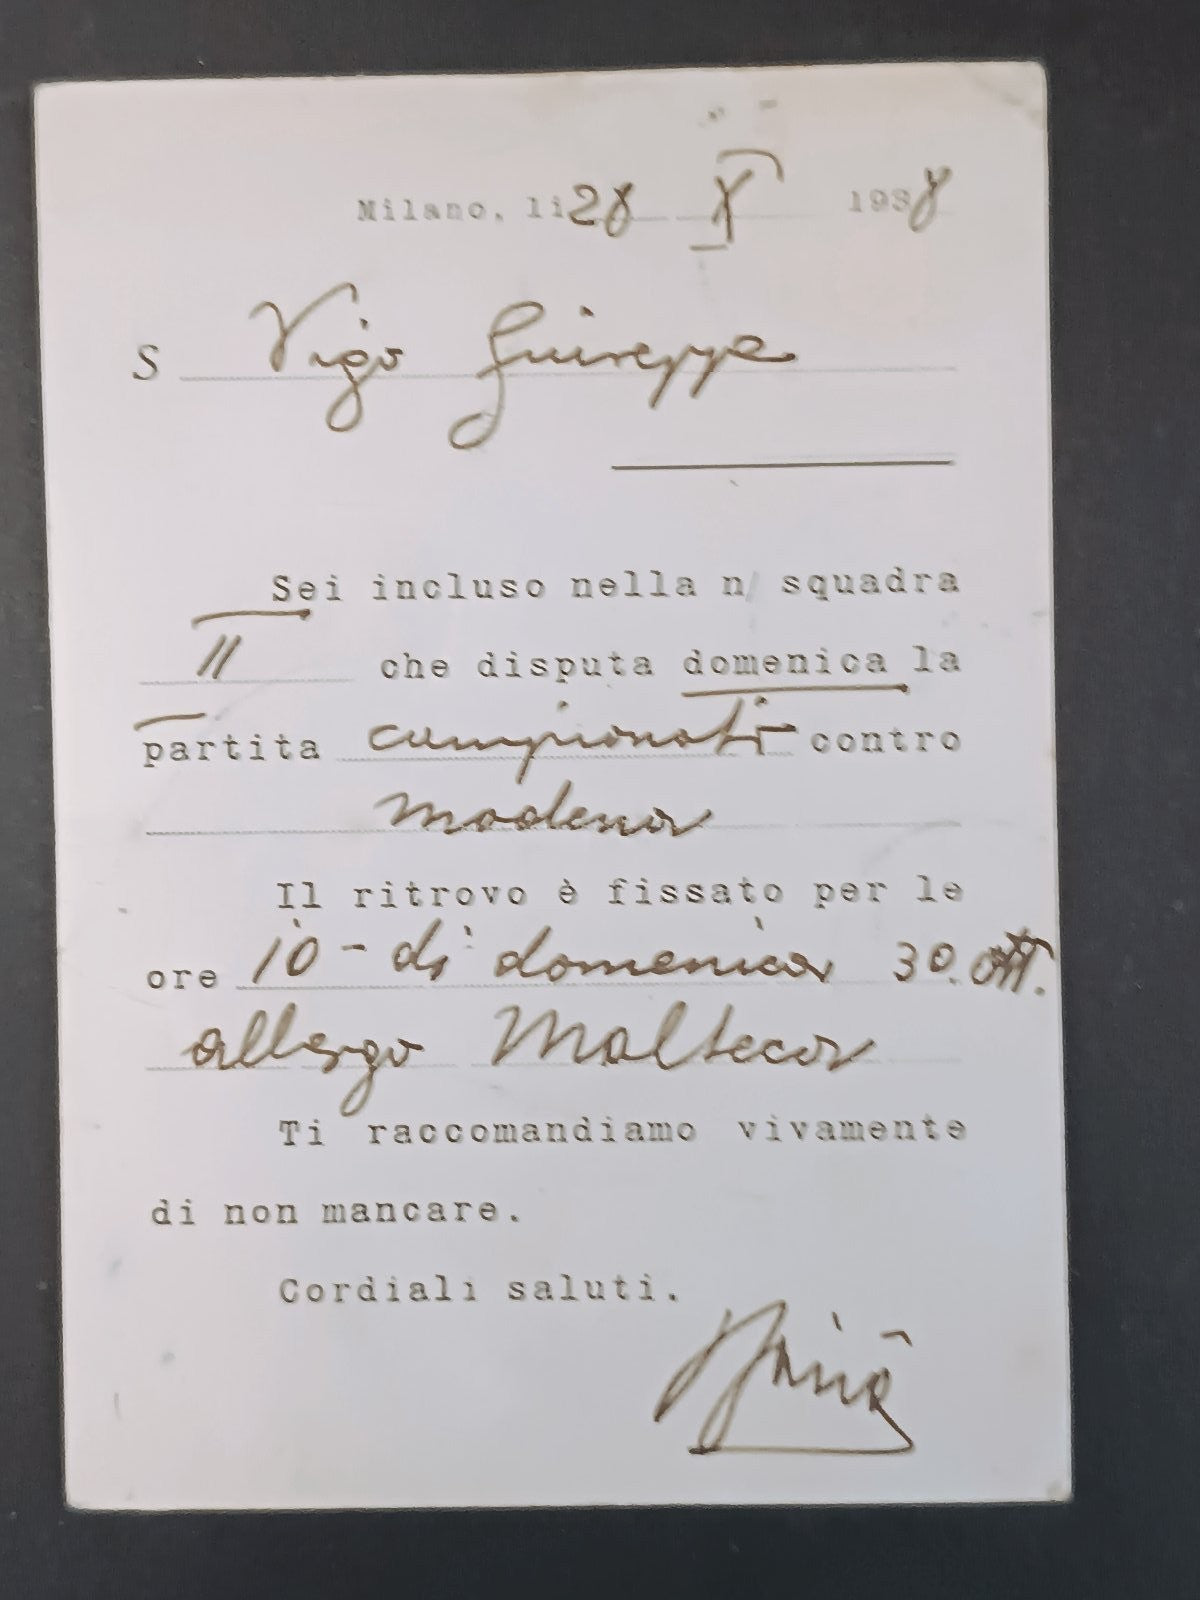 Milano, li 28 X 1938
S Vigo Giuseppe
Sei incluso nella n/ squadra
II che disputa domenica la
partita campionati contro
Modena
Il ritrovo è fissato per le
ore 10 - di domenica 30. ott.
albergo Malteca
Ti raccomandiamo vivamente
di non mancare.
Cordiali saluti.